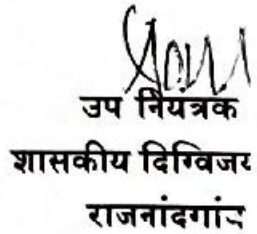 उप नियत्रक
शासकीय दिग्विजय
राजनांदगांव